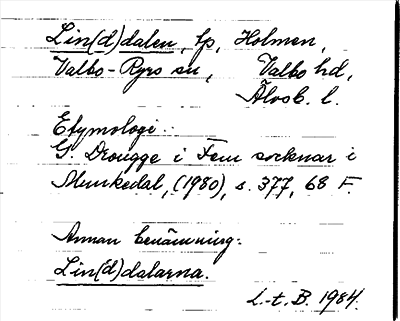 Lin(d)dalen, tp, Holmen,
Valbo-Ryrs sn, Valbo hd,
Älvsb. l.
Etymologi:
G. Drougge i Fem socknar i
Munkedal, (1980), s. 377, 68 F.
Annan benämning:
Lin(d)dalarna.
L.-t. B. 1984.